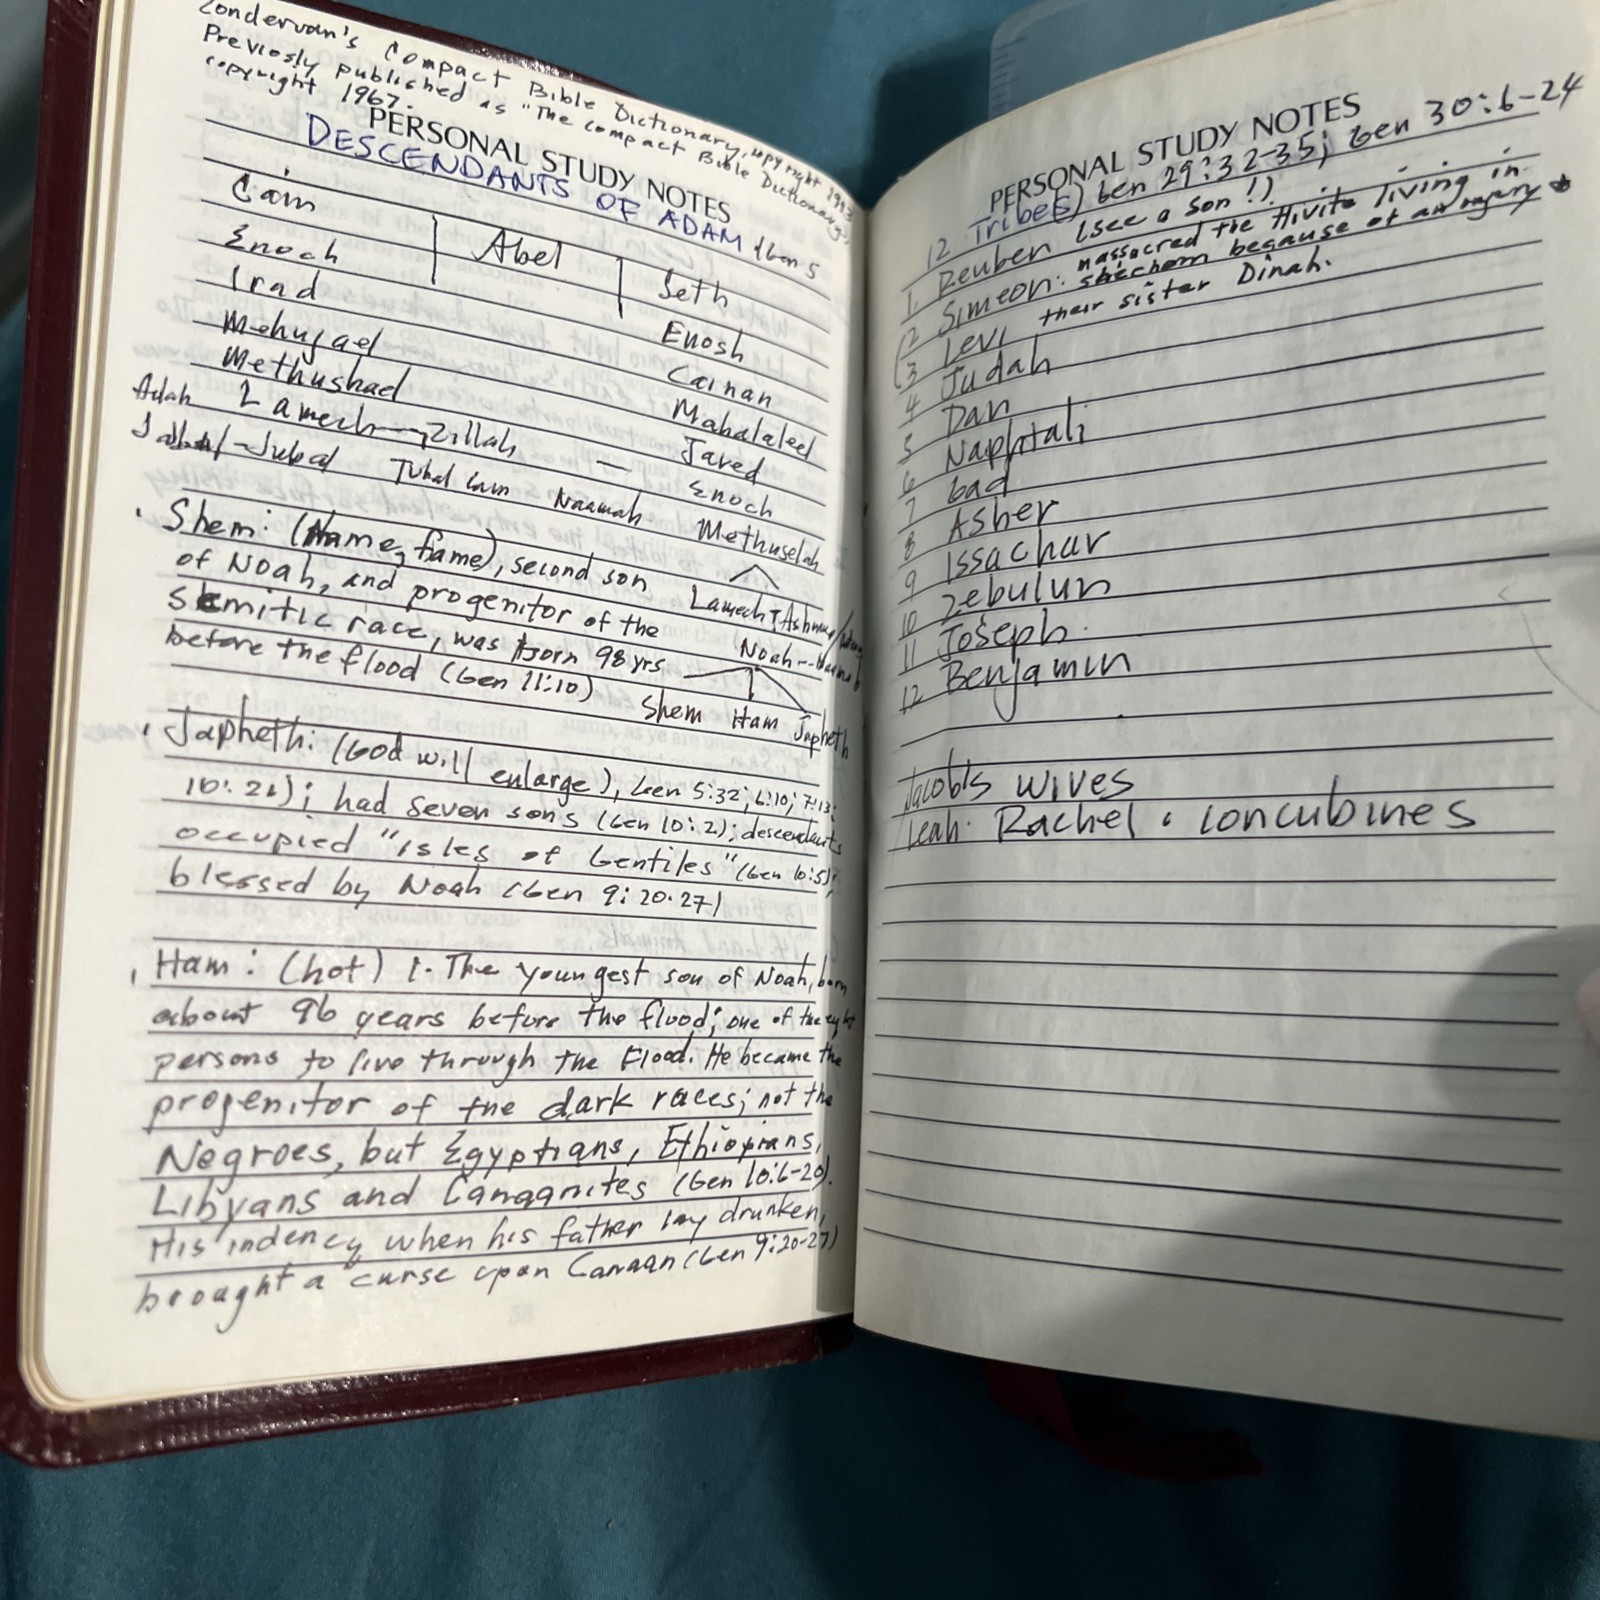 Zondervan's Compact Bible Dictionary, copyright 1993
Previosly published as "The Compact Bible Dictionary",
copyright 1967.
PERSONAL STUDY NOTES
DESCENDANTS OF ADAM Gen 5
Cain Abel Seth
Enoch Enosh
Irad Cainan
Mehujael Mahalaleel
Methushael Jared
Adah Lamech Zillah Enoch
Jabal-Jubal Tubal Cain Naamah Methuselah
Lamech
Noah
Shem Ham Japheth
Shem: (Name, fame), second son
of Noah, and progenitor of the
semitic race, was born 98 yrs
before the flood (Gen 11:10)
Japheth: (God will enlarge), Gen 5:32; 6:10; 7:13;
10:21); had seven sons (Gen 10:2); descendants
occupied "isles of Gentiles" (Gen 10:5);
blessed by Noah (Gen 9:20-27)
Ham: (hot) 1. The youngest son of Noah, born
about 96 years before the flood; one of the eight
persons to live through the Flood. He became the
progenitor of the dark races; not the
Negroes, but Egyptians, Ethiopians,
Libyans and Canaanites (Gen 10:6-20).
His indency when his father lay drunken,
brought a curse upon Canaan (Gen 9:20-27)
PERSONAL STUDY NOTES
12 Tribes) Gen 29:32-35; Gen 30:6-24
1. Reuben (see a son!)
2 Simeon: massacred the Hivite living in
shechem because of an injury to
3 Levi their sister Dinah.
4 Judah
5 Dan
6 Naphtali
7 Gad
8 Asher
9 Issachar
10 Zebulun
11 Joseph
12 Benjamin
Jacob's wives
Leah. Rachel. concubines